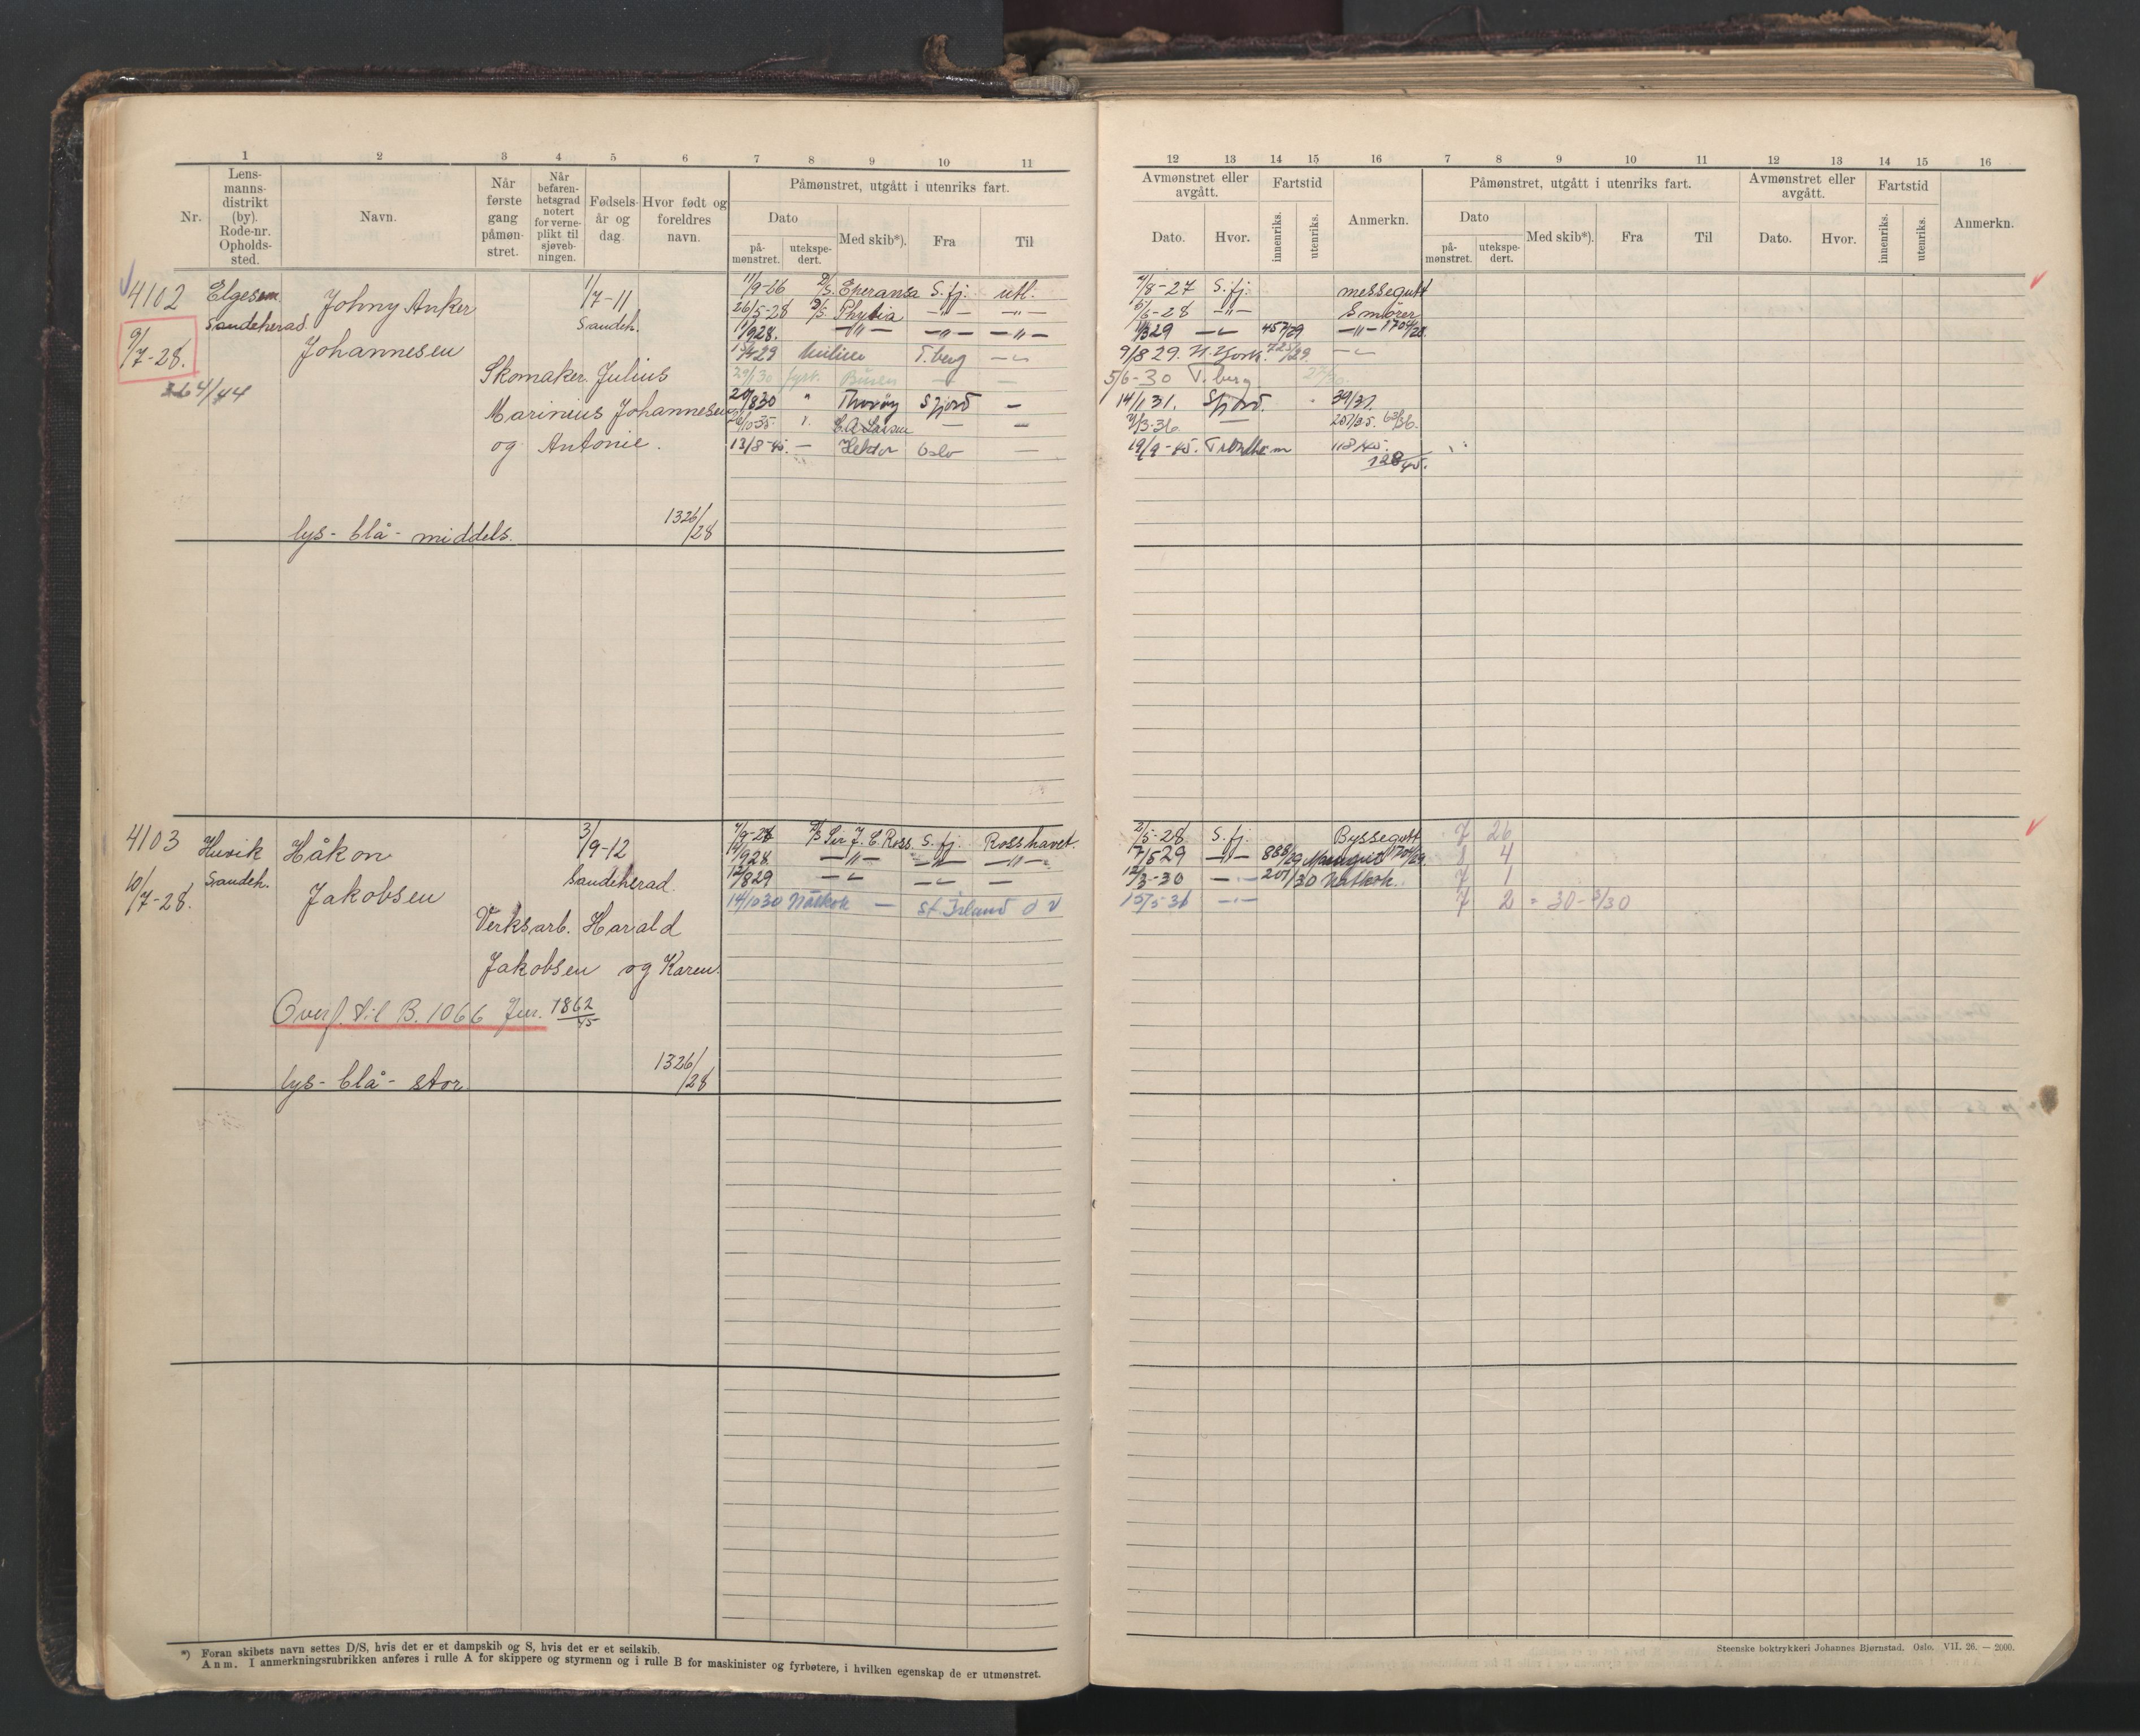 1 2 3 4 5 6 7 8 9 10 11
Nr.
Lens-
manns-
distrikt
(by).
Rode-nr.
Opholds-
sted.
Navn.
Når
første
gang
påmøn-
stret.
Når
befaren-
hetsgrad
notert
for verne-
plikt til
sjøveb-
ningen.
Fødsels-
år og
dag.
Hvor født og
foreldres
navn.
Påmønstret, utgått i utenriks fart.
Dato
på-
mønstret.
utekspe-
dert.
Med skib*).
Fra
Til
4102 Elgesem Johny Anker 1/7-11
Sandeherad. Sandeh.
9/7-28. Johannesen
264/44
Skomaker Julius
Marinius Johannesen
og Antonie.
lys - blå - middels. 1326/28
11/9-26 D/S. Eperansa S.fj. utl.
26/5-28 D/S Phybia -"- -"-
11/928. -"- -"- -"-
T.berg
29/1 30 fyrb. Busen — —
20/8 30 " Thorøy S fjord —
26/10-35 C.A Larsen — —
13/8-45. — Hektor Oslo —
4103 Huvik Håkon 3/9-12
10/7-28. Sandeh. Jakobsen Sandeherad.
Verksarb. Harald
Jakobsen og Karen.
Overf. til B. 1066 Jur. 1862/45
lys - blå - stor 1326/28
D/S Sir J. C. Ross. S. fj. Rosshavet.
-"- -"- -"-
12/8 29
14/10 30 Nattkok — St. Island
*) Foran skibets navn settes D/S, hvis det er et dampskib og S, hvis det er et seilskib.
Anm. I anmerkningsrubrikken anføres i rulle A for skippere og styrmenn og i rulle B for maskinister og fyrbøtere, i hvilken egenskap de er utmønstret.
12 13 14 15 16 7 8 9 10 11 12 13 14 15 16
Avmønstret eller
avgått.
Dato.
Hvor.
Fartstid
innenriks.
utenriks.
Anmerkn.
Påmønstret, utgått i utenriks fart.
Dato
på-
mønstret.
utekspe-
dert.
Med skib*).
Fra
Til
Avmønstret eller
avgått.
Dato.
Hvor.
Fartstid
innenriks.
utenriks.
Anmerkn.
S. fj. messegutt
5/6-28 -"- Smører
457/29 -"-
9/8 29. N. York.
5/6-30 T. berg
14/1 31. S fjord. 39/31.
2/3-36 — 207/35. 63/36.
19/9-45. Trondhem 118/45.
128/45.
2/5-28 S. fj. Byssegutt 7 26
7/5 29 -"- 888/29 4
12/3-30 207/30 Nattkok. 7 1
15/5-31 7 2 30-
Steenske boktrykkeri Johannes Bjørnstad. Oslo. VII. 26. — 2000.